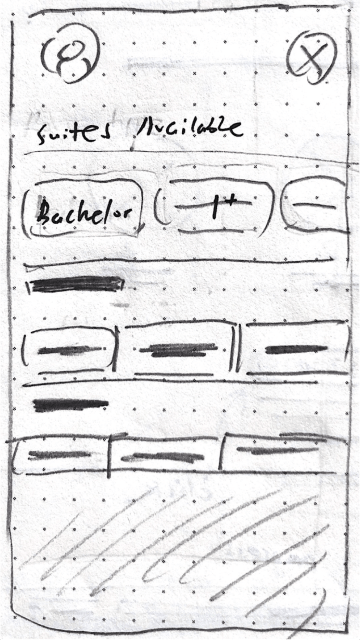 Suites Available
Bachelor 1+